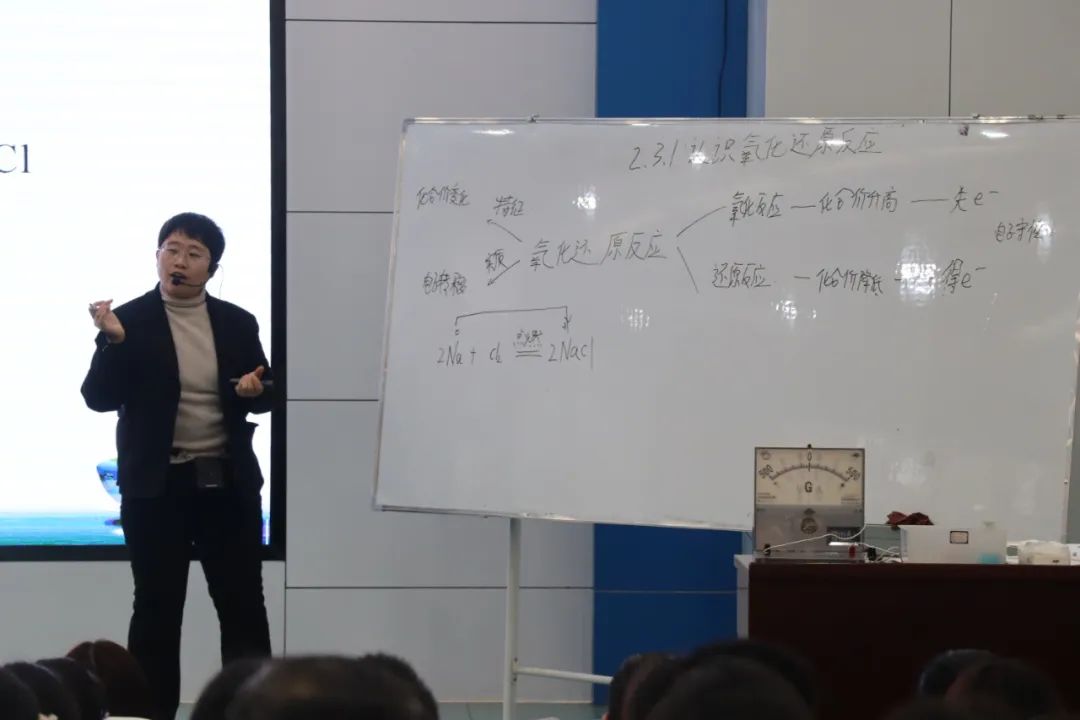 Cl
2.3.1 认识氧化还原反应
化合价变化 特征
氧化还原反应
氧化反应 — 化合价升高 — 失e⁻
电子守恒
还原反应 — 化合价降低 — 得e⁻
电子转移
2Na + Cl₂ 点燃 2NaCl
500 0 500
G